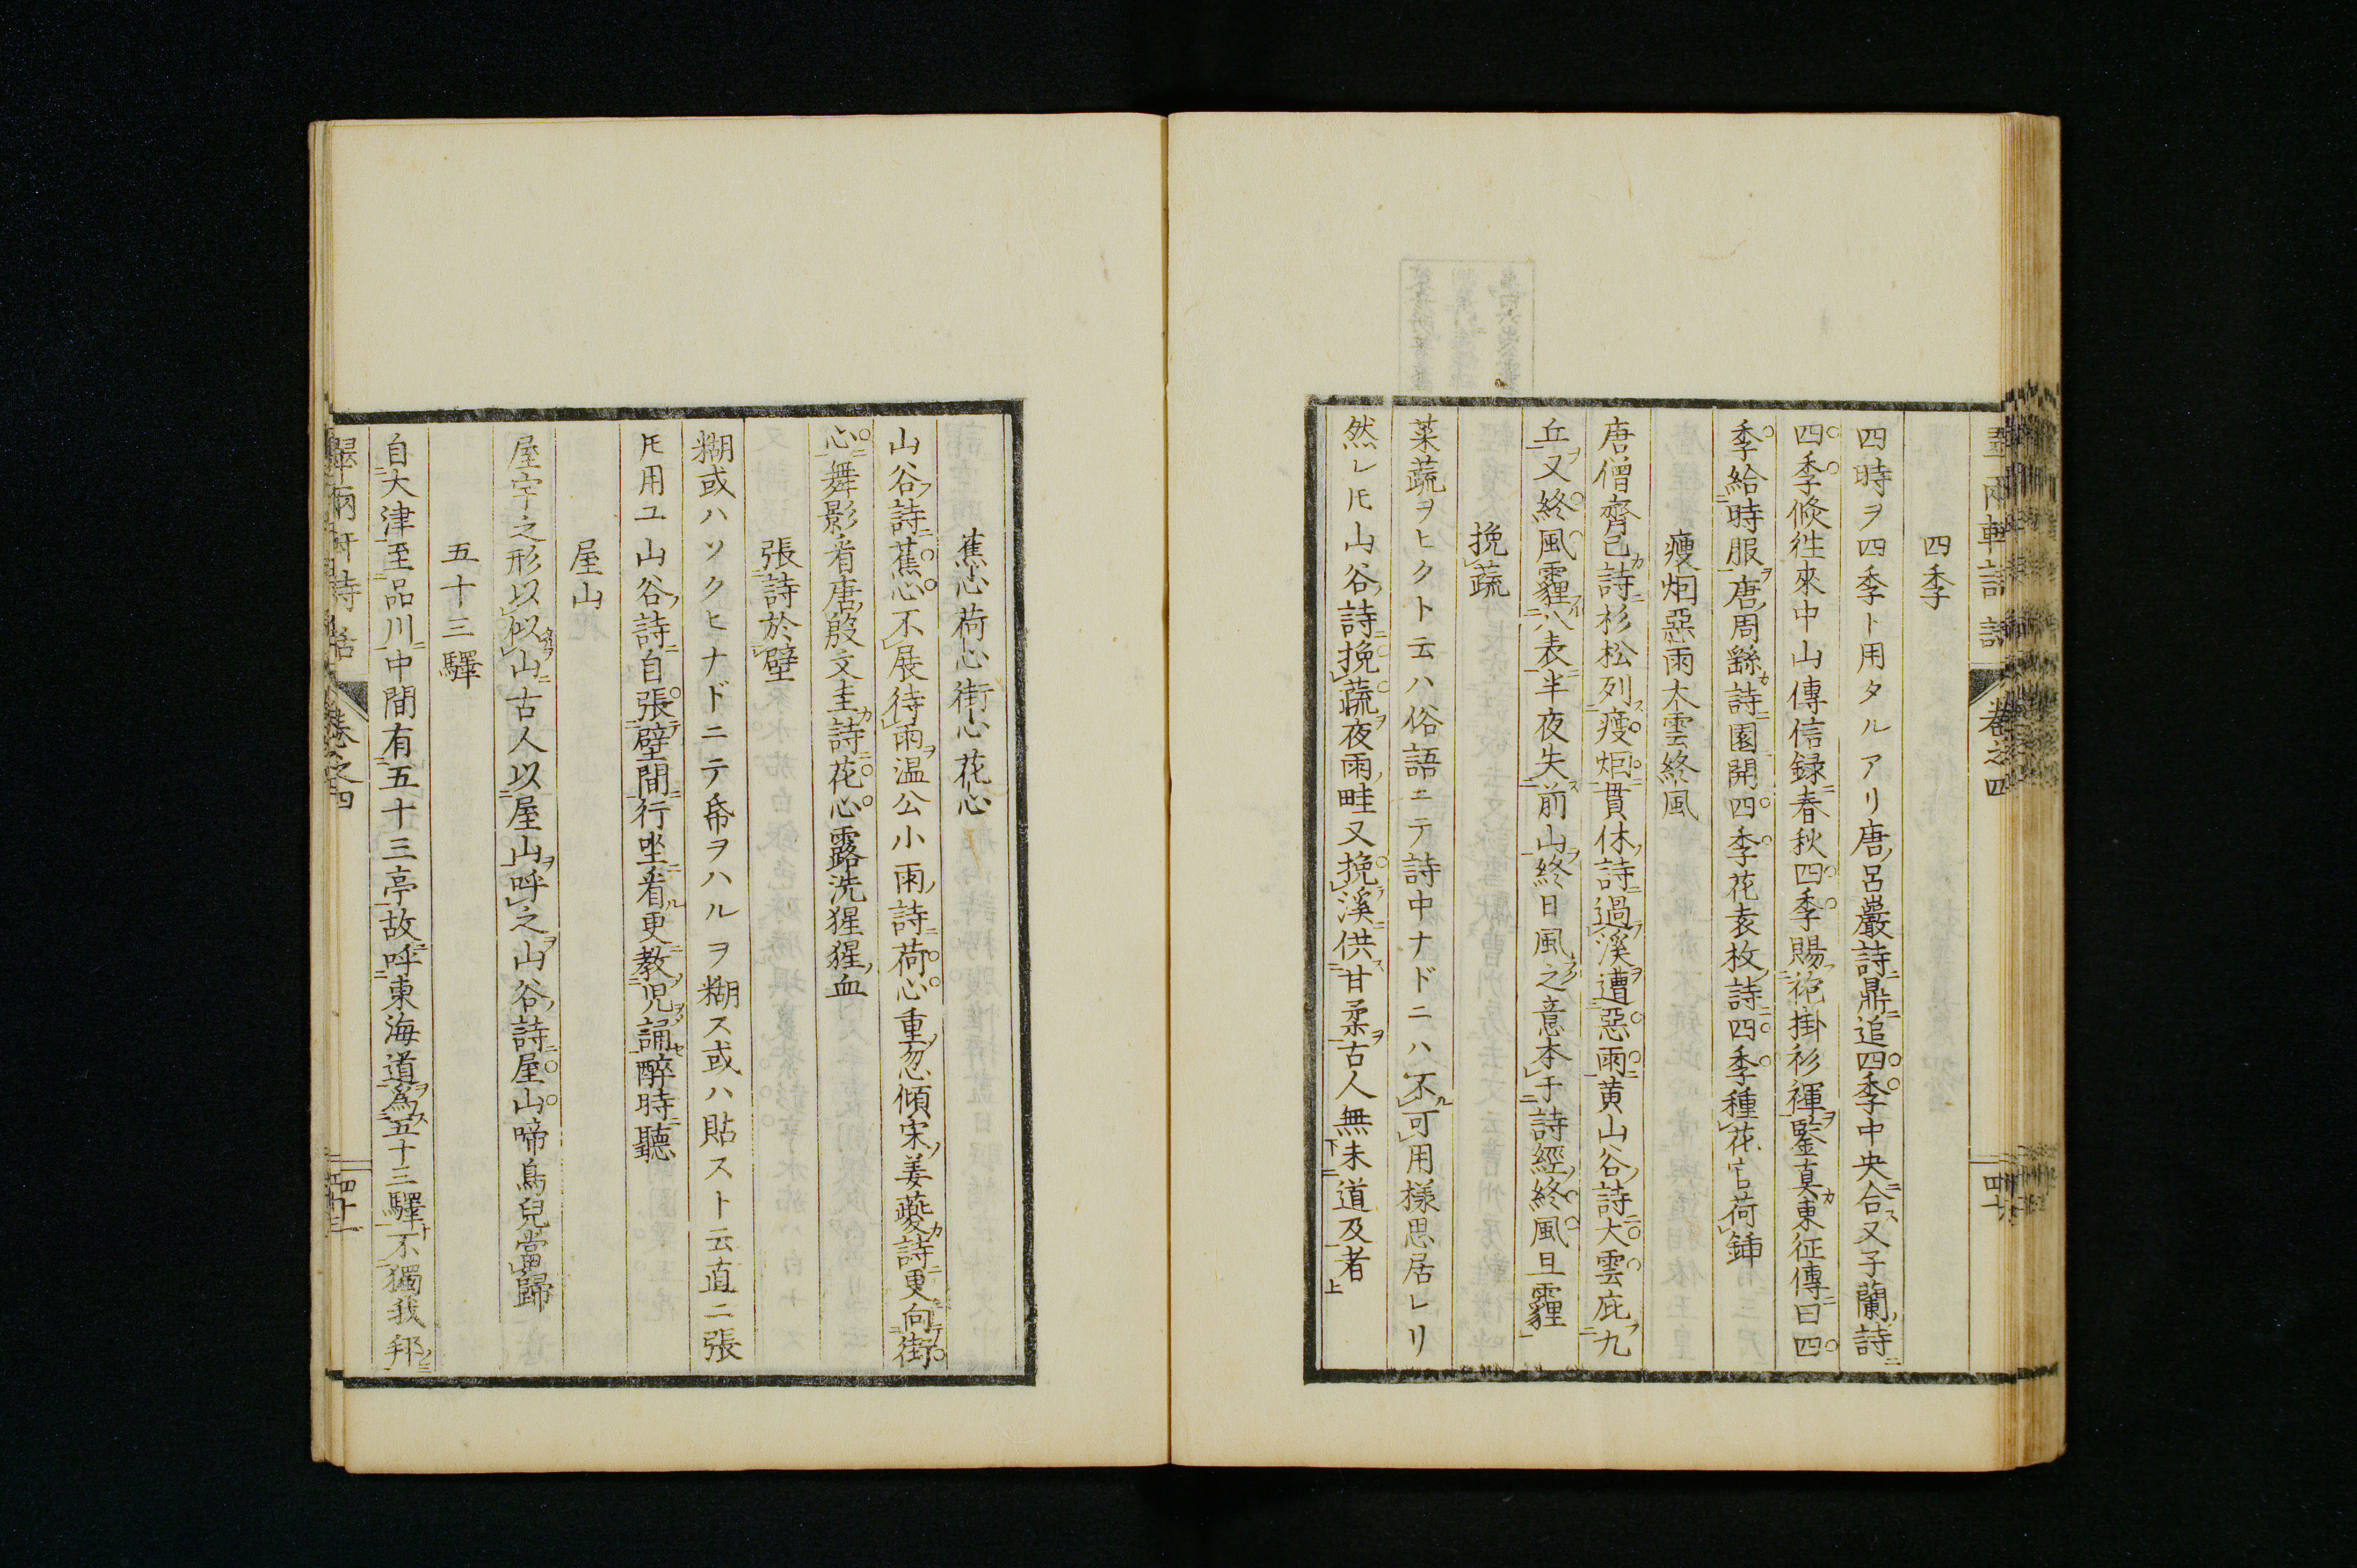 四季
四時ヲ四季ト用タルアリ唐ノ呂巖詩ニ鼎追四季中央合又子蘭ノ詩ニ
四季倐徃來中山傳信録ニ春秋四季賜袍掛衫褌鑒真東征傳ニ曰四
季給時服唐ノ周繇詩ニ園開四季花袁枚ノ詩ニ四季種花官荷鍤
瘦炬惡雨大雲終風
唐僧齊己詩ニ杉松列瘦炬貫休ノ詩ニ過溪遭惡雨黄山谷ノ詩ニ大雲庇九
丘又終風霾八表半夜失前山終日風之意本于詩經ノ終風且霾
挽蔬
菜蔬ヲヒクト云ハ俗語ニテ詩中ナドニハ不可用樣思居レリ
然レ𪜈山谷ノ詩ニ挽蔬夜雨畦又挽溪供甘柔古人無未道及者
蕉心荷心街心花心
山谷ノ詩ニ蕉心不展待雨温公小雨ノ詩ニ荷心重忽傾宋ノ姜夔詩ニ更向街
心舞影看唐ノ殷文圭詩ニ花心露洗猩猩血
張詩於壁
糊或ハソクヒナドニテ帋ヲハルヲ糊ス或ハ貼スト云直ニ張
𪜈用ユ山谷ノ詩ニ自張壁間行坐看更教児誦醉時聽
屋山
屋宇之形以似山古人以屋山呼之山谷ノ詩ニ屋山啼鳥兒當歸
五十三驛
自大津至品川中間有五十三亭故呼東海道爲五十三驛不獨我邦
卷之四